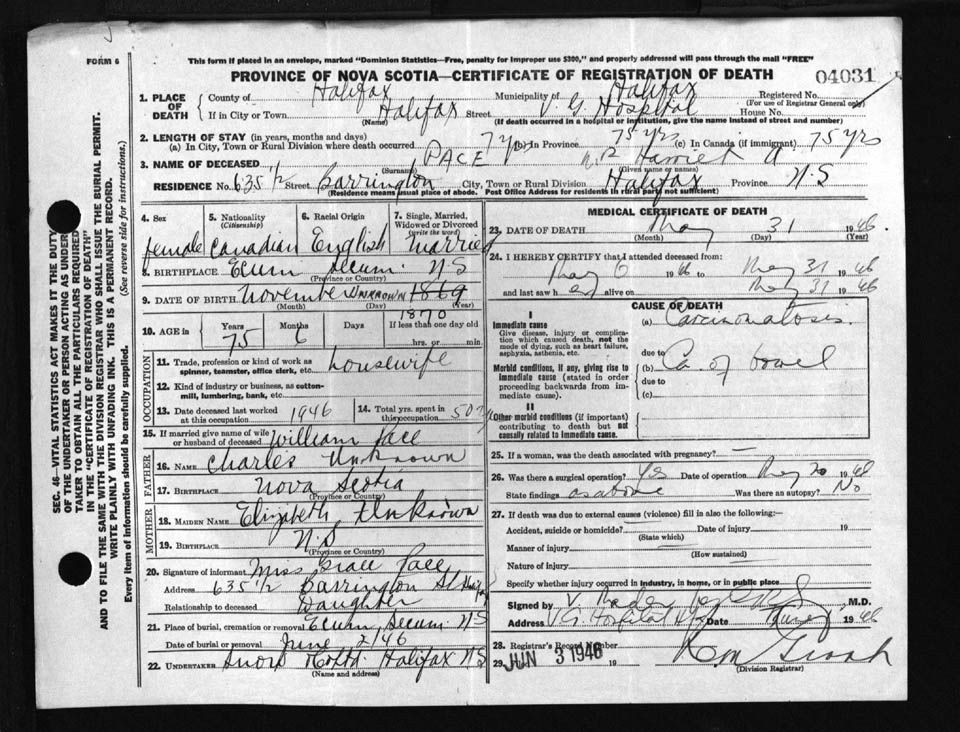 FORM 6
This form if placed in an envelope, marked "Dominion Statistics—Free, penalty for improper use $300," and properly addressed will pass through the mail "FREE"
PROVINCE OF NOVA SCOTIA—CERTIFICATE OF REGISTRATION OF DEATH
04031
1. PLACE OF DEATH
County of Halifax Municipality of Halifax Registered No.
(For use of Registrar General only)
If in City or Town Halifax Street V. G. Hospital House No.
(Name) (If death occurred in a hospital or institution, give the name instead of street and number)
2. LENGTH OF STAY (in years, months and days)
(a) In City, Town or Rural Division where death occurred 7 yrs (b) In Province 75 yrs (c) In Canada (if immigrant) 75 yrs
3. NAME OF DECEASED PACE Mrs Harriet A
(Surname) (Given name or names)
RESIDENCE No. 635 1/2 Street Barrington City, Town or Rural Division Halifax Province N.S
(Residence means usual place of abode. Post Office Address for residents in rural parts not sufficient)
4. Sex female
5. Nationality (Citizenship) Canadian
6. Racial Origin English
7. Single, Married, Widowed or Divorced (write the word) Married
8. BIRTHPLACE Ecum Secum N S
(Province or Country)
9. DATE OF BIRTH November UNKNOWN 1869
(Month) (Day) (Year)
1870
10. AGE in Years 75 Months 6 Days If less than one day old hrs. or min.
OCCUPATION
11. Trade, profession or kind of work as spinner, teamster, office clerk, etc. housewife
12. Kind of industry or business, as cotton-mill, lumbering, bank, etc.
13. Date deceased last worked at this occupation 1946
14. Total yrs. spent in this occupation 50 yrs
15. If married give name of wife or husband of deceased William Pace
FATHER
16. Name Charles Unknown
17. Birthplace Nova Scotia
(Province or Country)
MOTHER
18. Maiden Name Elizabeth Unknown
19. Birthplace N.S
(Province or Country)
20. Signature of informant Miss Grace Pace
Address 635 1/2 Barrington St Halifax
Relationship to deceased Daughter
21. Place of burial, cremation or removal Ecum Secum N S
Date of burial or removal June 2/46
22. UNDERTAKER Snows Halifax N S
(Name and address)
MEDICAL CERTIFICATE OF DEATH
23. DATE OF DEATH May 31 1946
(Month) (Day) (Year)
24. I HEREBY CERTIFY that I attended deceased from:
May 6 1946 to May 31 1946
and last saw her alive on May 31 1946
CAUSE OF DEATH
I
Immediate cause
Give disease, injury or complication which caused death, not the mode of dying, such as heart failure, asphyxia, asthenia, etc.
(a) Carcinomatosis.
due to
Morbid conditions, if any, giving rise to immediate cause (stated in order proceeding backwards from immediate cause).
(b) Ca. of bowel
due to
(c)
II
Other morbid conditions (if important) contributing to death but not causally related to immediate cause.
25. If a woman, was the death associated with pregnancy? —
26. Was there a surgical operation? Yes Date of operation May 20 1946
State findings as above Was there an autopsy? No
27. If death was due to external causes (violence) fill in also the following:—
Accident, suicide or homicide? Date of injury 19
(State which)
Manner of injury
(How sustained)
Nature of injury
Specify whether injury occurred in industry, in home, or in public place
Signed by M.D.
Address V G Hospital Date 1946
28. Registrar's Record Number
29. JUN 3 1946 19
(Division Registrar)
SEC. 46—VITAL STATISTICS ACT MAKES IT THE DUTY
OF THE UNDERTAKER OR PERSON ACTING AS UNDERTAKER TO OBTAIN ALL THE PARTICULARS REQUIRED
IN THE "CERTIFICATE OF REGISTRATION OF DEATH"
AND TO FILE THE SAME WITH THE DIVISION REGISTRAR WHO SHALL ISSUE THE BURIAL PERMIT.
WRITE PLAINLY WITH UNFADING INK. THIS IS A PERMANENT RECORD.
Every item of information should be carefully supplied. (See reverse side for instructions.)